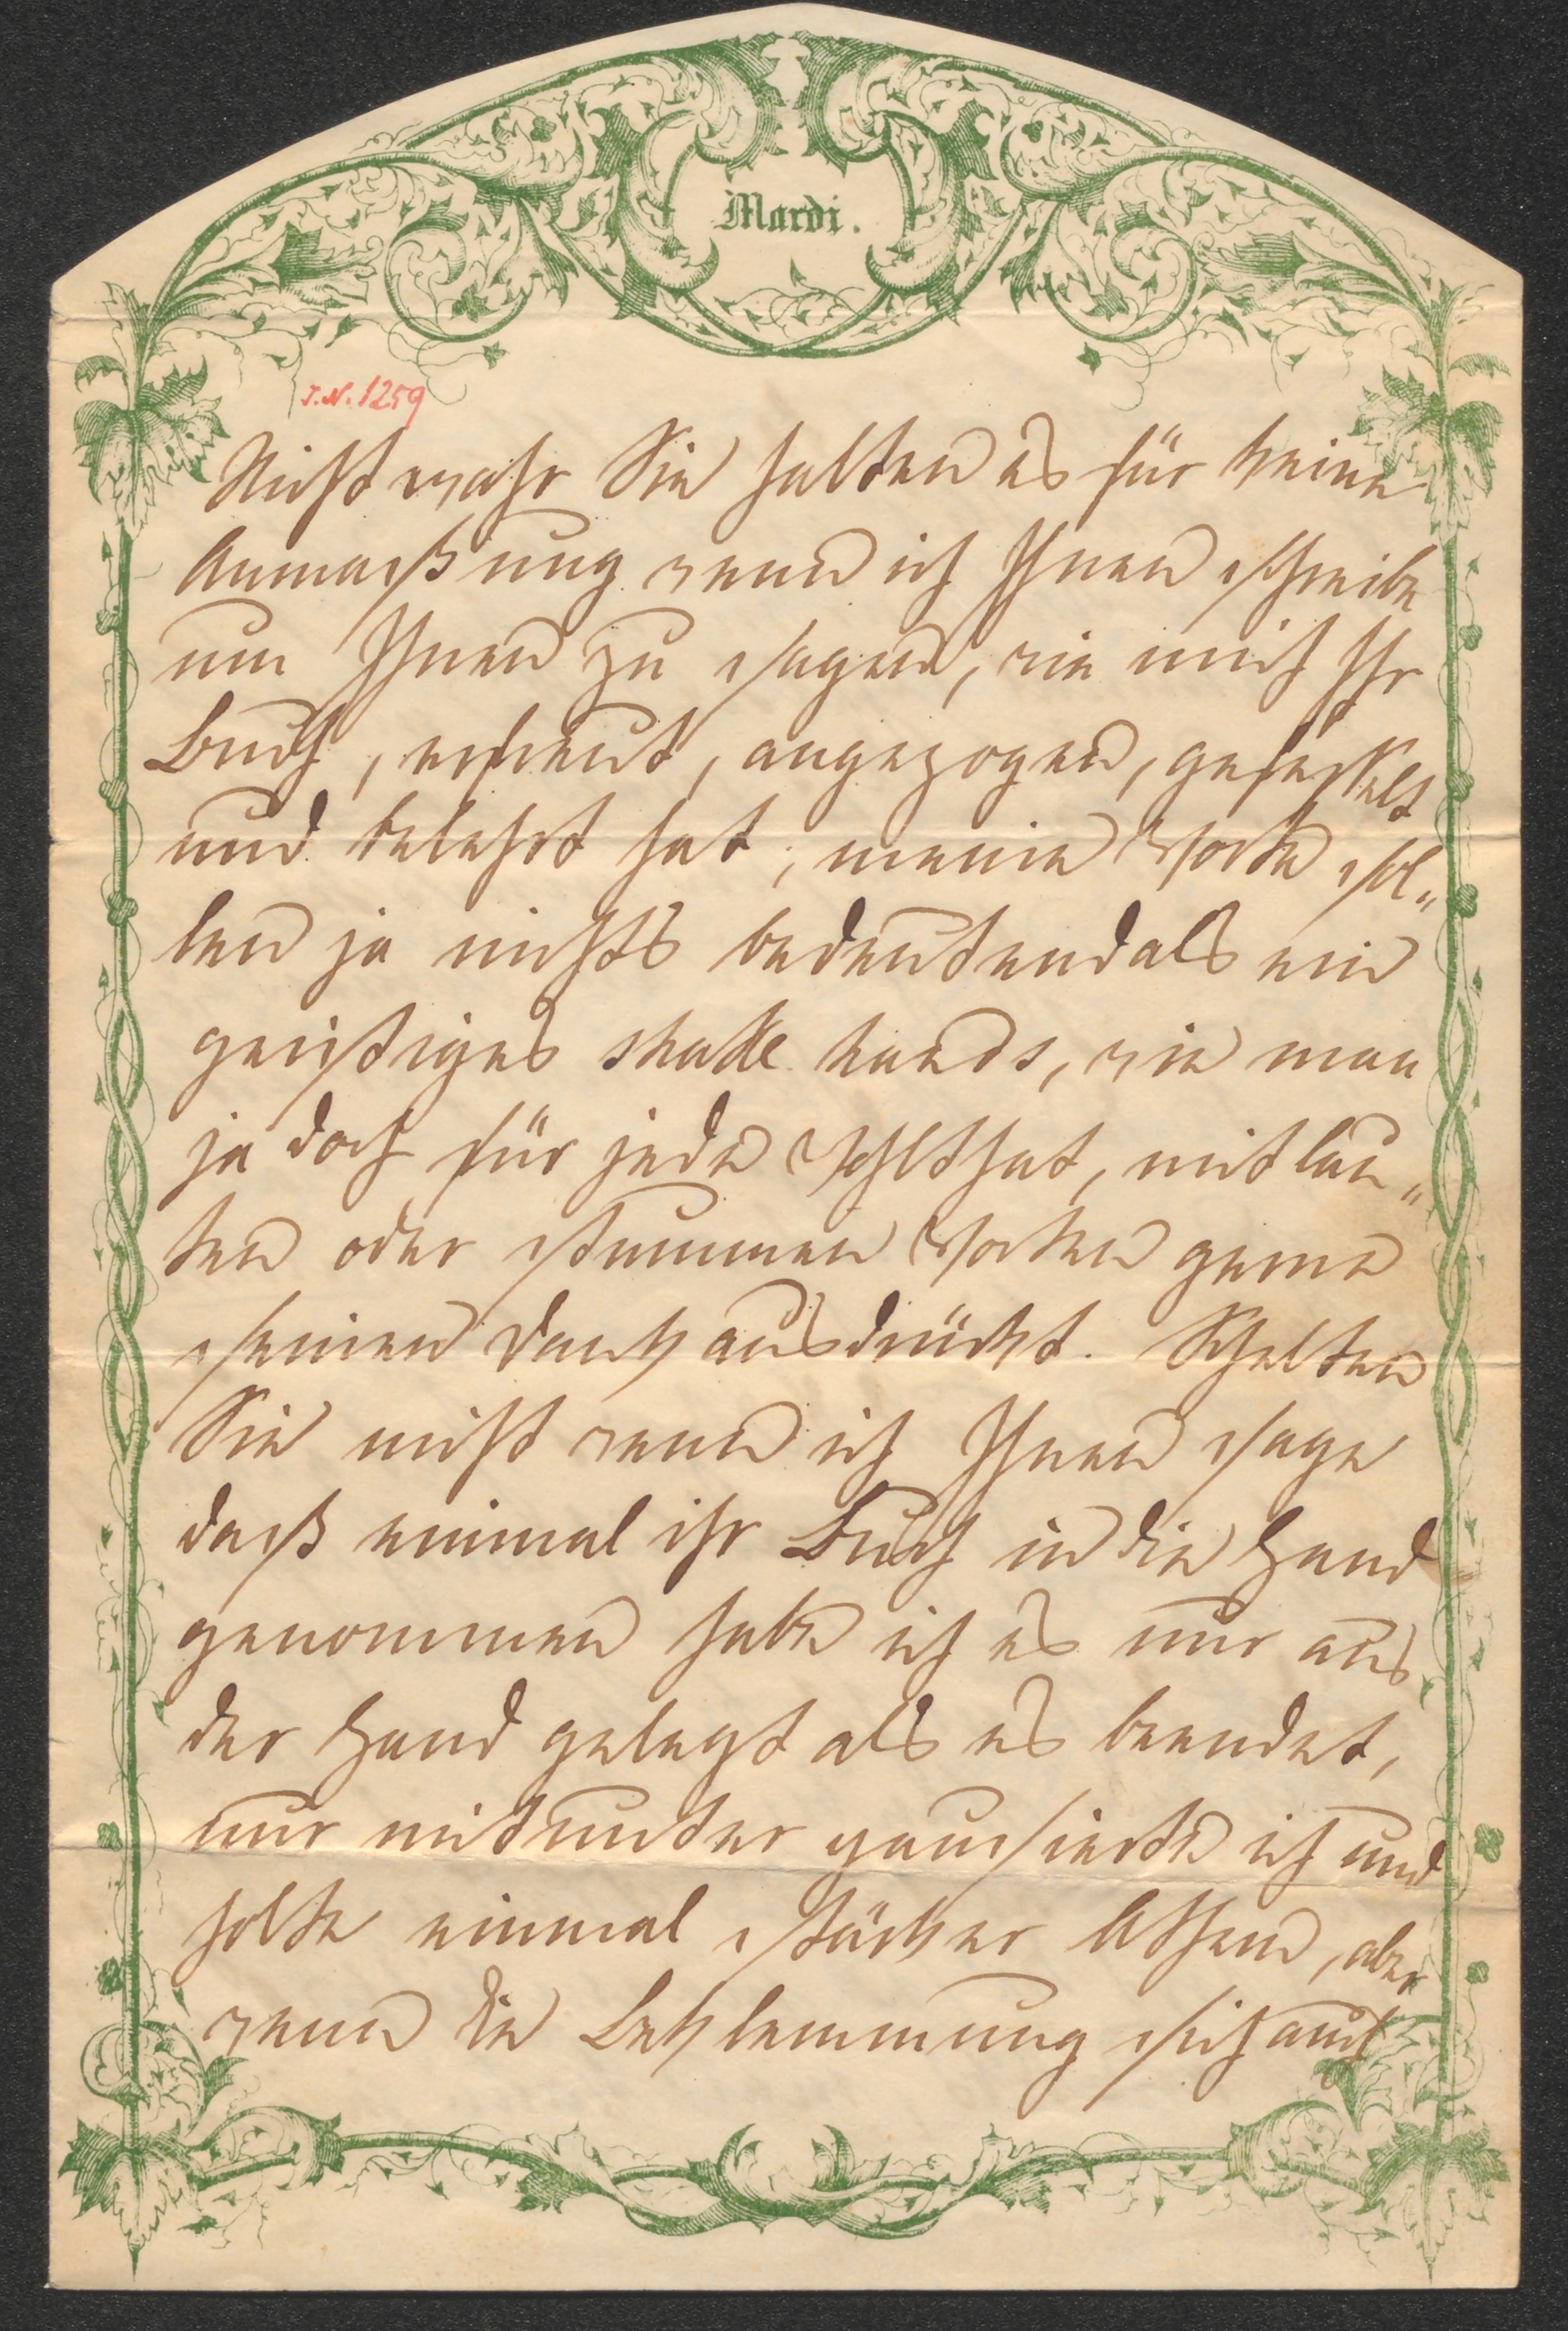 Mardi.
I.N. 1259
Nicht wahr Sie halten es für keine
Anmaßung wenn ich Ihnen schreibe
um Ihnen zu sagen, wie mich Ihr
Buch, erfreut, angezogen, gefesselt
und belehrt hat; meine Worte sol„
len ja nichts bedeutend als ein
geistiges shake hands, wie man
ja doch für jede Wohlthat, mit lau„
ten oder stummen Worten gerne
seinen Dank ausdrückt. Schelten
Sie nicht wenn ich Ihnen sage
daß einmal ihr Buch in die Hand
genommen habe ich es nur aus
der Hand gelegt als es beendet,
nur mitunter pausierte ich und
holte einmal stärker Athem, aber
wenn die Beklemmung sich auch